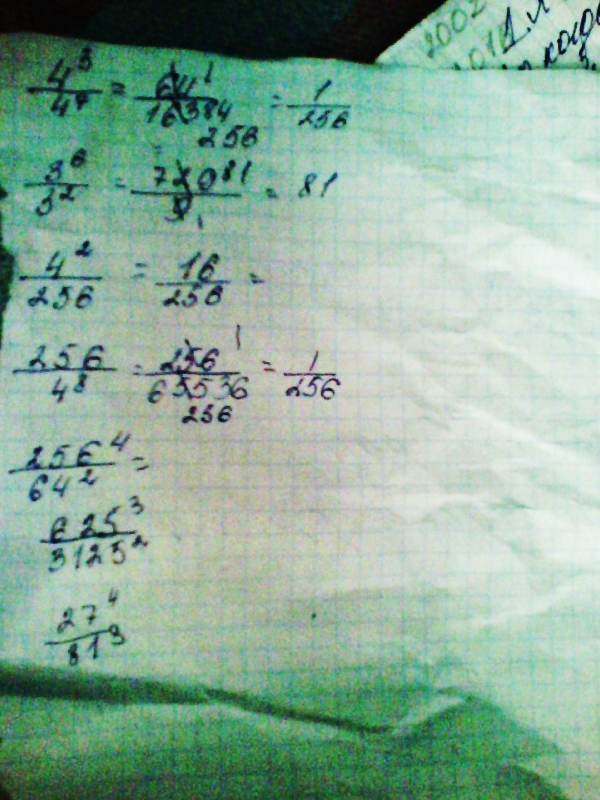 2002
1
когда
4^3/4^7 = 64 1/16384 256 = 1/256
3^6/3^2 = 729 81/9 1 = 81
4^2/256 = 16/256 =
256/4^8 = 256 1/65536 256 = 1/256
256^4/64^2 =
625^3/3125^2
27^4/81^3